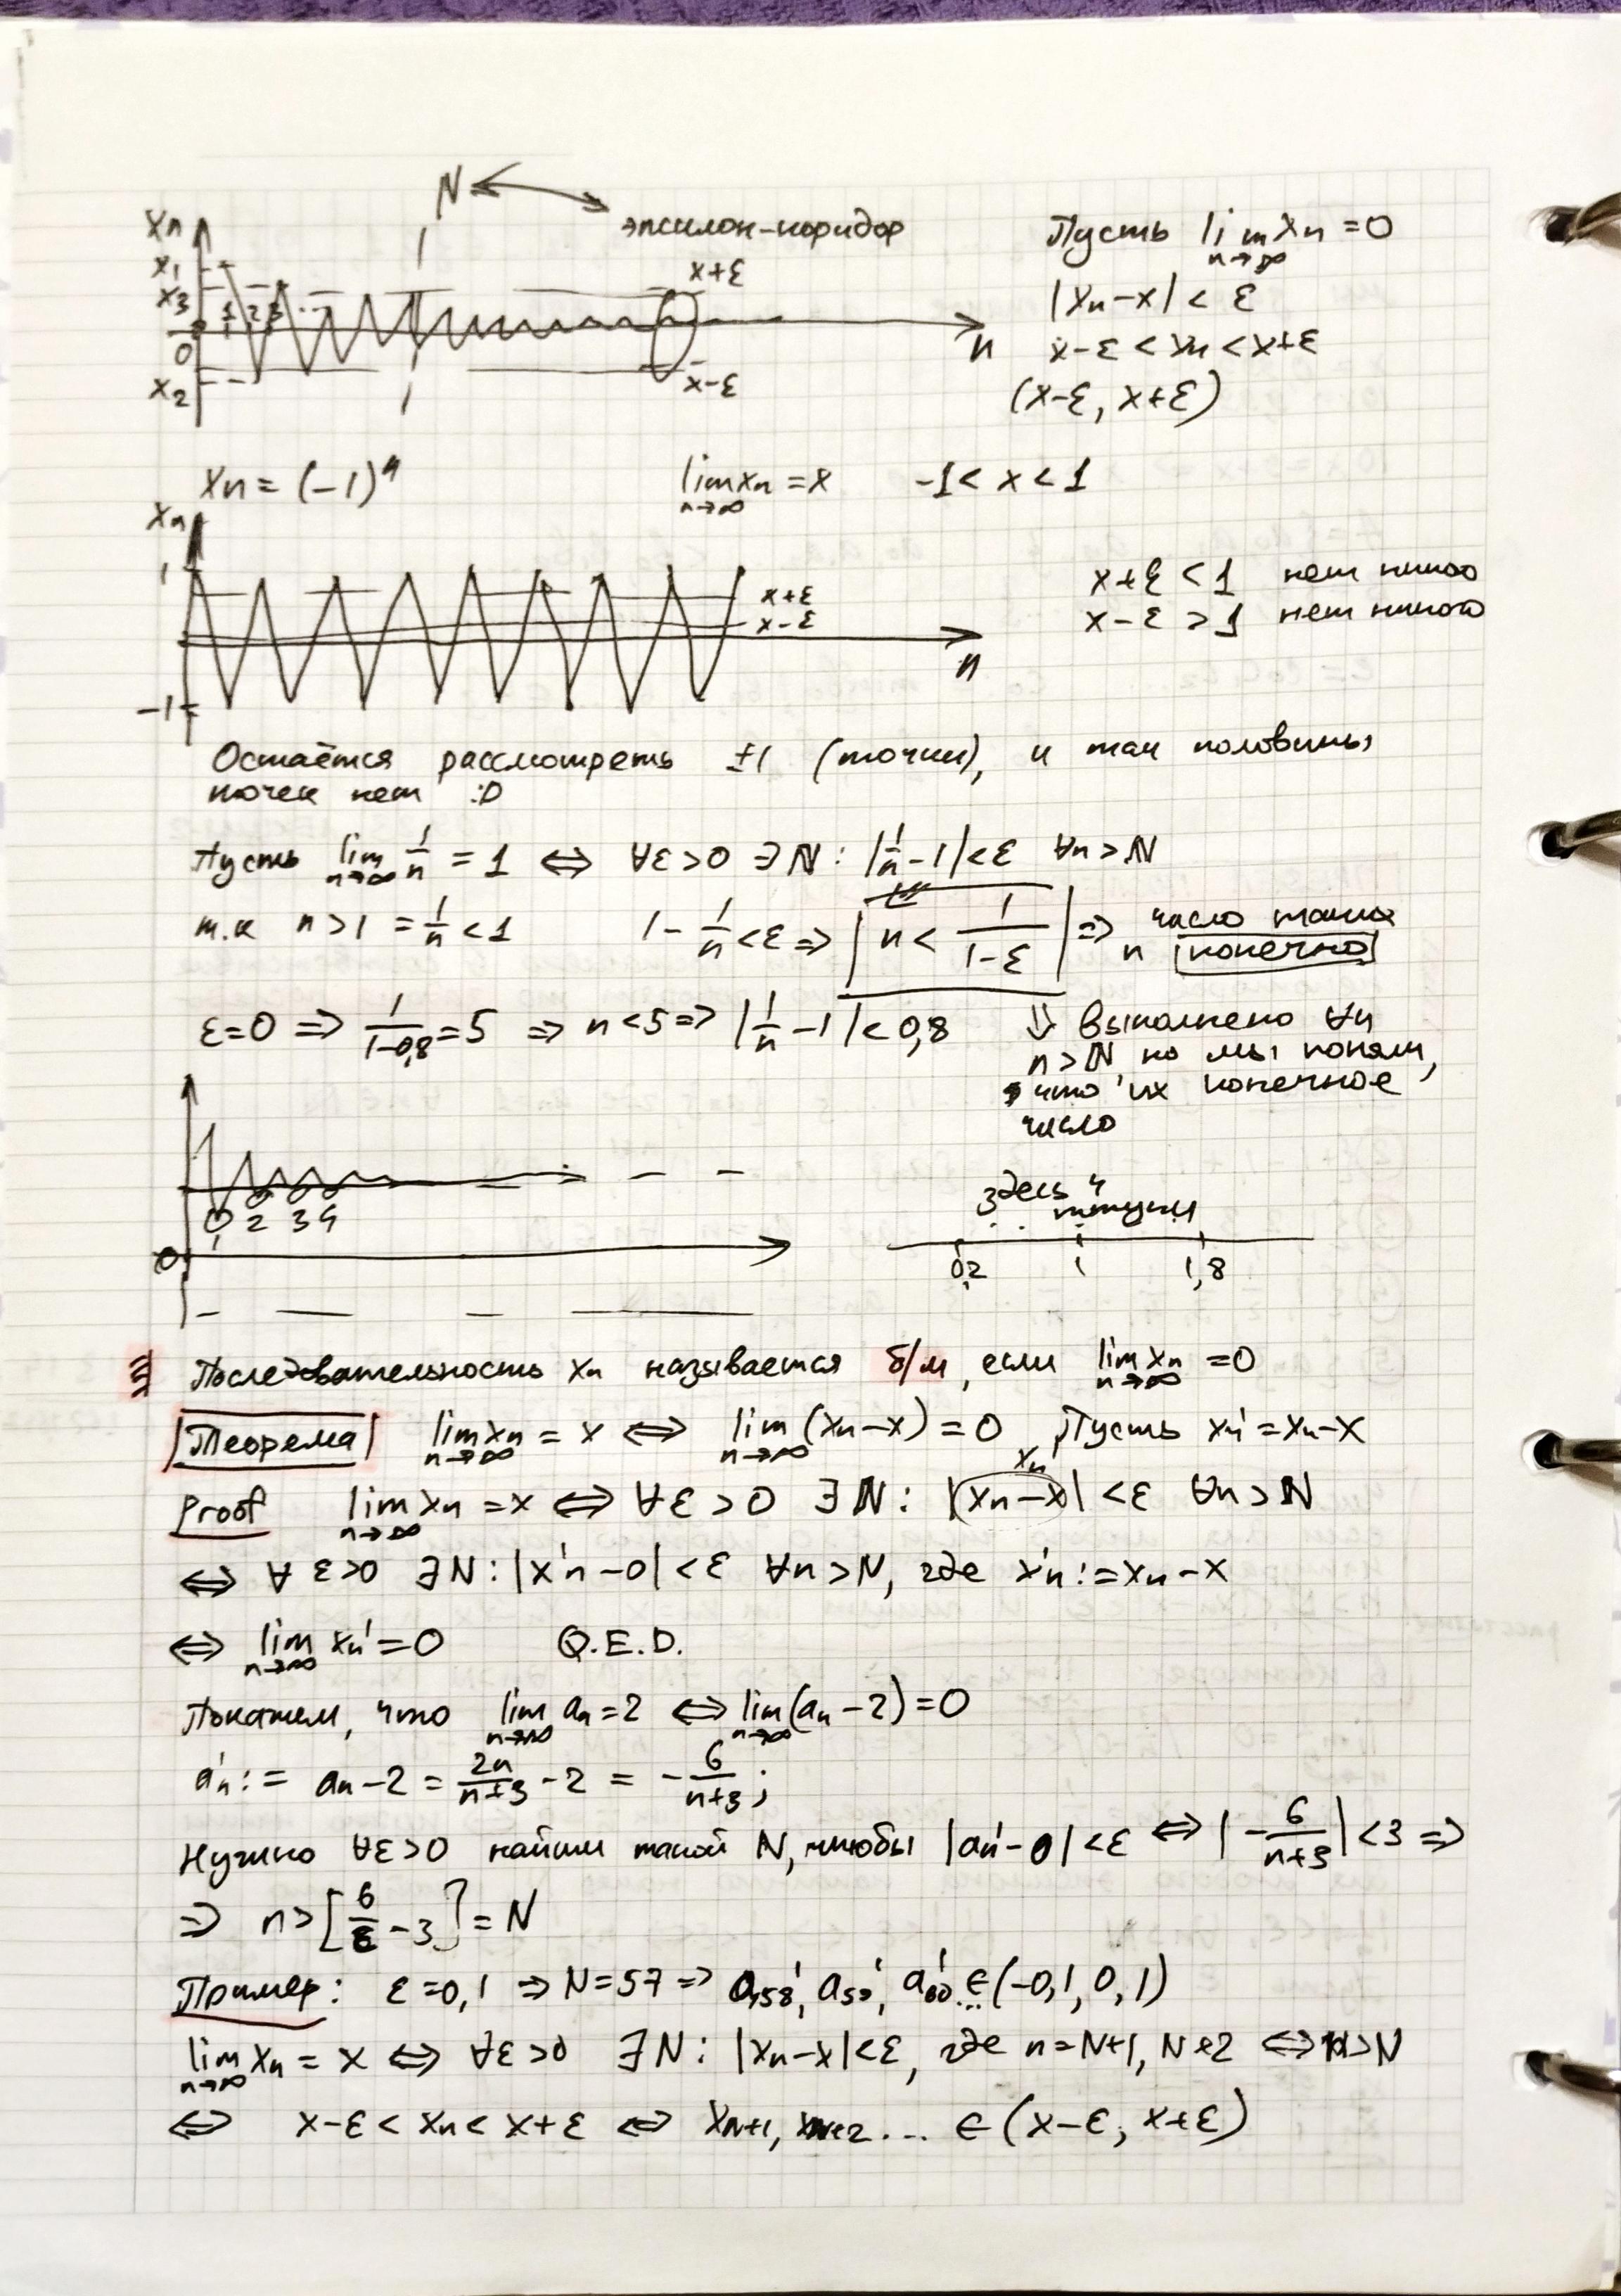 N ⟷ эпсилон-коридор
Xn
x1
x3
0
x2
1 2 3 ...
x+ε
x-ε
n
Пусть lim xn = 0
n→∞
|xn-x| < ε
x-ε < xn < x+ε
(x-ε, x+ε)
xn = (-1)^n lim xn = x -1 < x < 1
n→∞
Xn
1
-1
x+ε
x-ε
n
x+ε < 1 нет никого
x-ε > 1 нет никого
Остаётся рассмотреть ±1 (точки), и там половины
точек нет :D
Пусть lim 1/n = 1 ⇔ ∀ε>0 ∃N: |1/n - 1|<ε ∀n>N
n→∞
т.к n>1 = 1/n < 1 1 - 1/n < ε ⇒ |n < 1/(1-ε)| ⇒ число таких
n конечно
ε=0 ⇒ 1/(1-0,8) = 5 ⇒ n<5 ⇒ |1/n - 1| < 0,8 ⇓ выполнено ∀n
n>N но мы поняли,
что их конечное
число
0
1 2 3 4
здесь 4
штуки
0,2 1 1,8
Последовательность xn называется б/м, если lim xn = 0
n→∞
Теорема lim xn = x ⇔ lim (xn-x) = 0 Пусть xn' = xn-x
n→∞ n→∞
xn'
Proof lim xn = x ⇔ ∀ε>0 ∃N: |xn-x| < ε ∀n>N
n→∞
⇔ ∀ε>0 ∃N: |x'n-0| < ε ∀n>N, где x'n := xn-x
⇔ lim xn' = 0 Q.E.D.
n→∞
Покажем, что lim an = 2 ⇔ lim (an-2) = 0
n→∞ n→∞
a'n := an-2 = 2n/(n+3) - 2 = -6/(n+3);
Нужно ∀ε>0 найти такой N, чтобы |an'-0| < ε ⇔ |-6/(n+3)| < 3 ⇒
⇒ n > [6/ε - 3] = N
Пример: ε=0,1 ⇒ N=57 ⇒ a58', a59', a60'... ∈ (-0,1, 0,1)
lim xn = x ⇔ ∀ε>0 ∃N: |xn-x|<ε, где n=N+1, N+2 ⇔ n>N
n→∞
⇔ x-ε < xn < x+ε ⇔ xN+1, xN+2... ∈ (x-ε; x+ε)